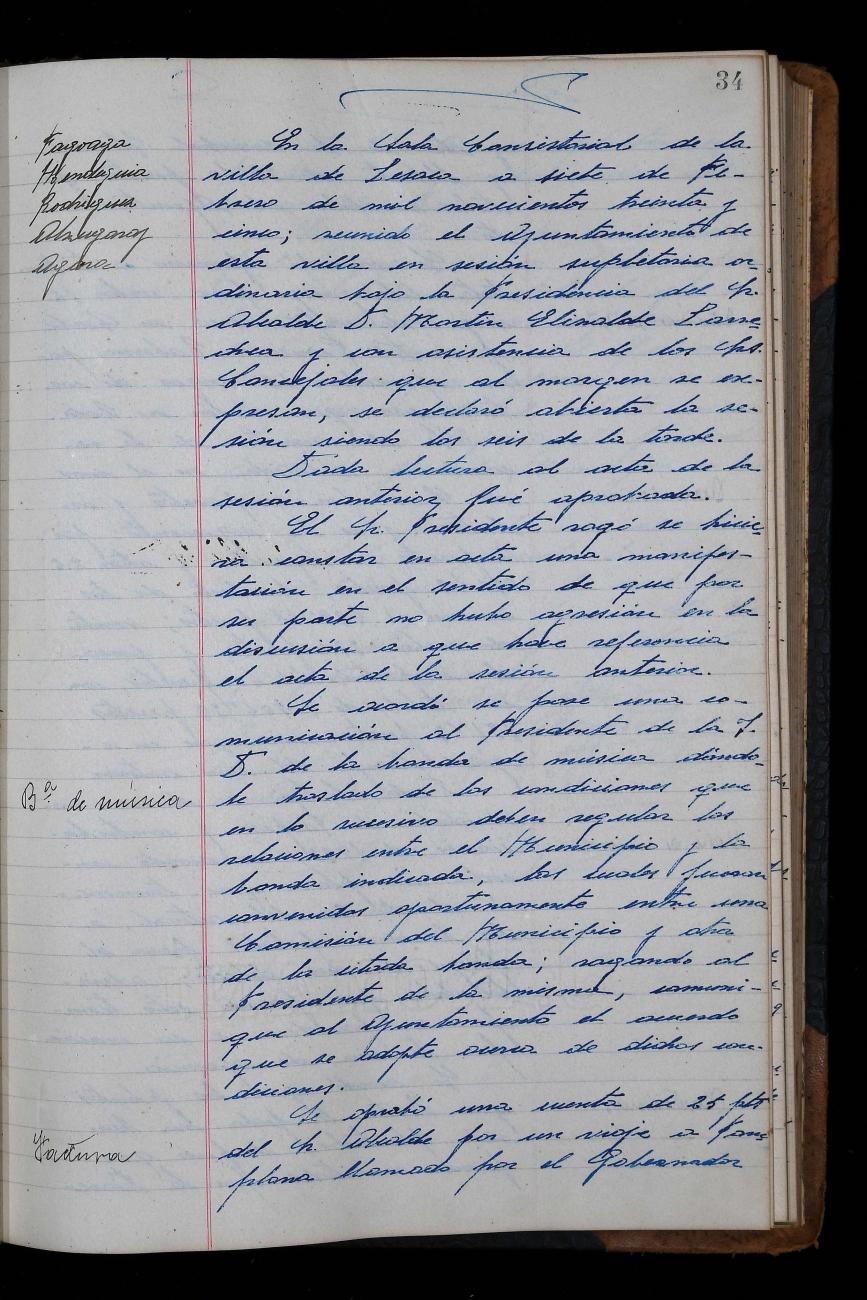 34
Fagoaga
Mendiguia
Rodriguez
Alzugaray
Agara
En la Sala Consistorial de la
villa de Lesaca a siete de Fe-
brero de mil novecientos treinta y
cinco; reunido el Ayuntamiento de
esta villa en sesión supletoria or-
dinaria bajo la Presidencia del Sr.
Alcalde D. Martín Elizalde Larre-
chea y con asistencia de los Srs.
Concejales que al margen se ex-
presan, se declaró abierta la se-
sión siendo las seis de la tarde.
Dada lectura al acta de la
sesión anterior fué aprobada.
El Sr. Presidente rogó se hicie-
ra constar en acta una manifes-
tación en el sentido de que por
su parte no hubo agresión en la
discusión a que hace referencia
el acta de la sesión anterior.
Se acordó se pase una co-
municación al Presidente de la J.
D. de la banda de música dándo-
B.ª de música
le traslado de las condiciones que
en lo sucesivo deben regular las
relaciones entre el Municipio y la
banda indicada, las cuales fueron
convenidas oportunamente entre una
Comisión del Municipio y otra
de la citada banda; rogando al
Presidente de la misma, comuni-
que al Ayuntamiento el acuerdo
que se adopte acerca de dichas con-
diciones.
Se aprobó una cuenta de 25 pts
Factura
del Sr. Alcalde por un viaje a Pam-
plona llamado por el Gobernador